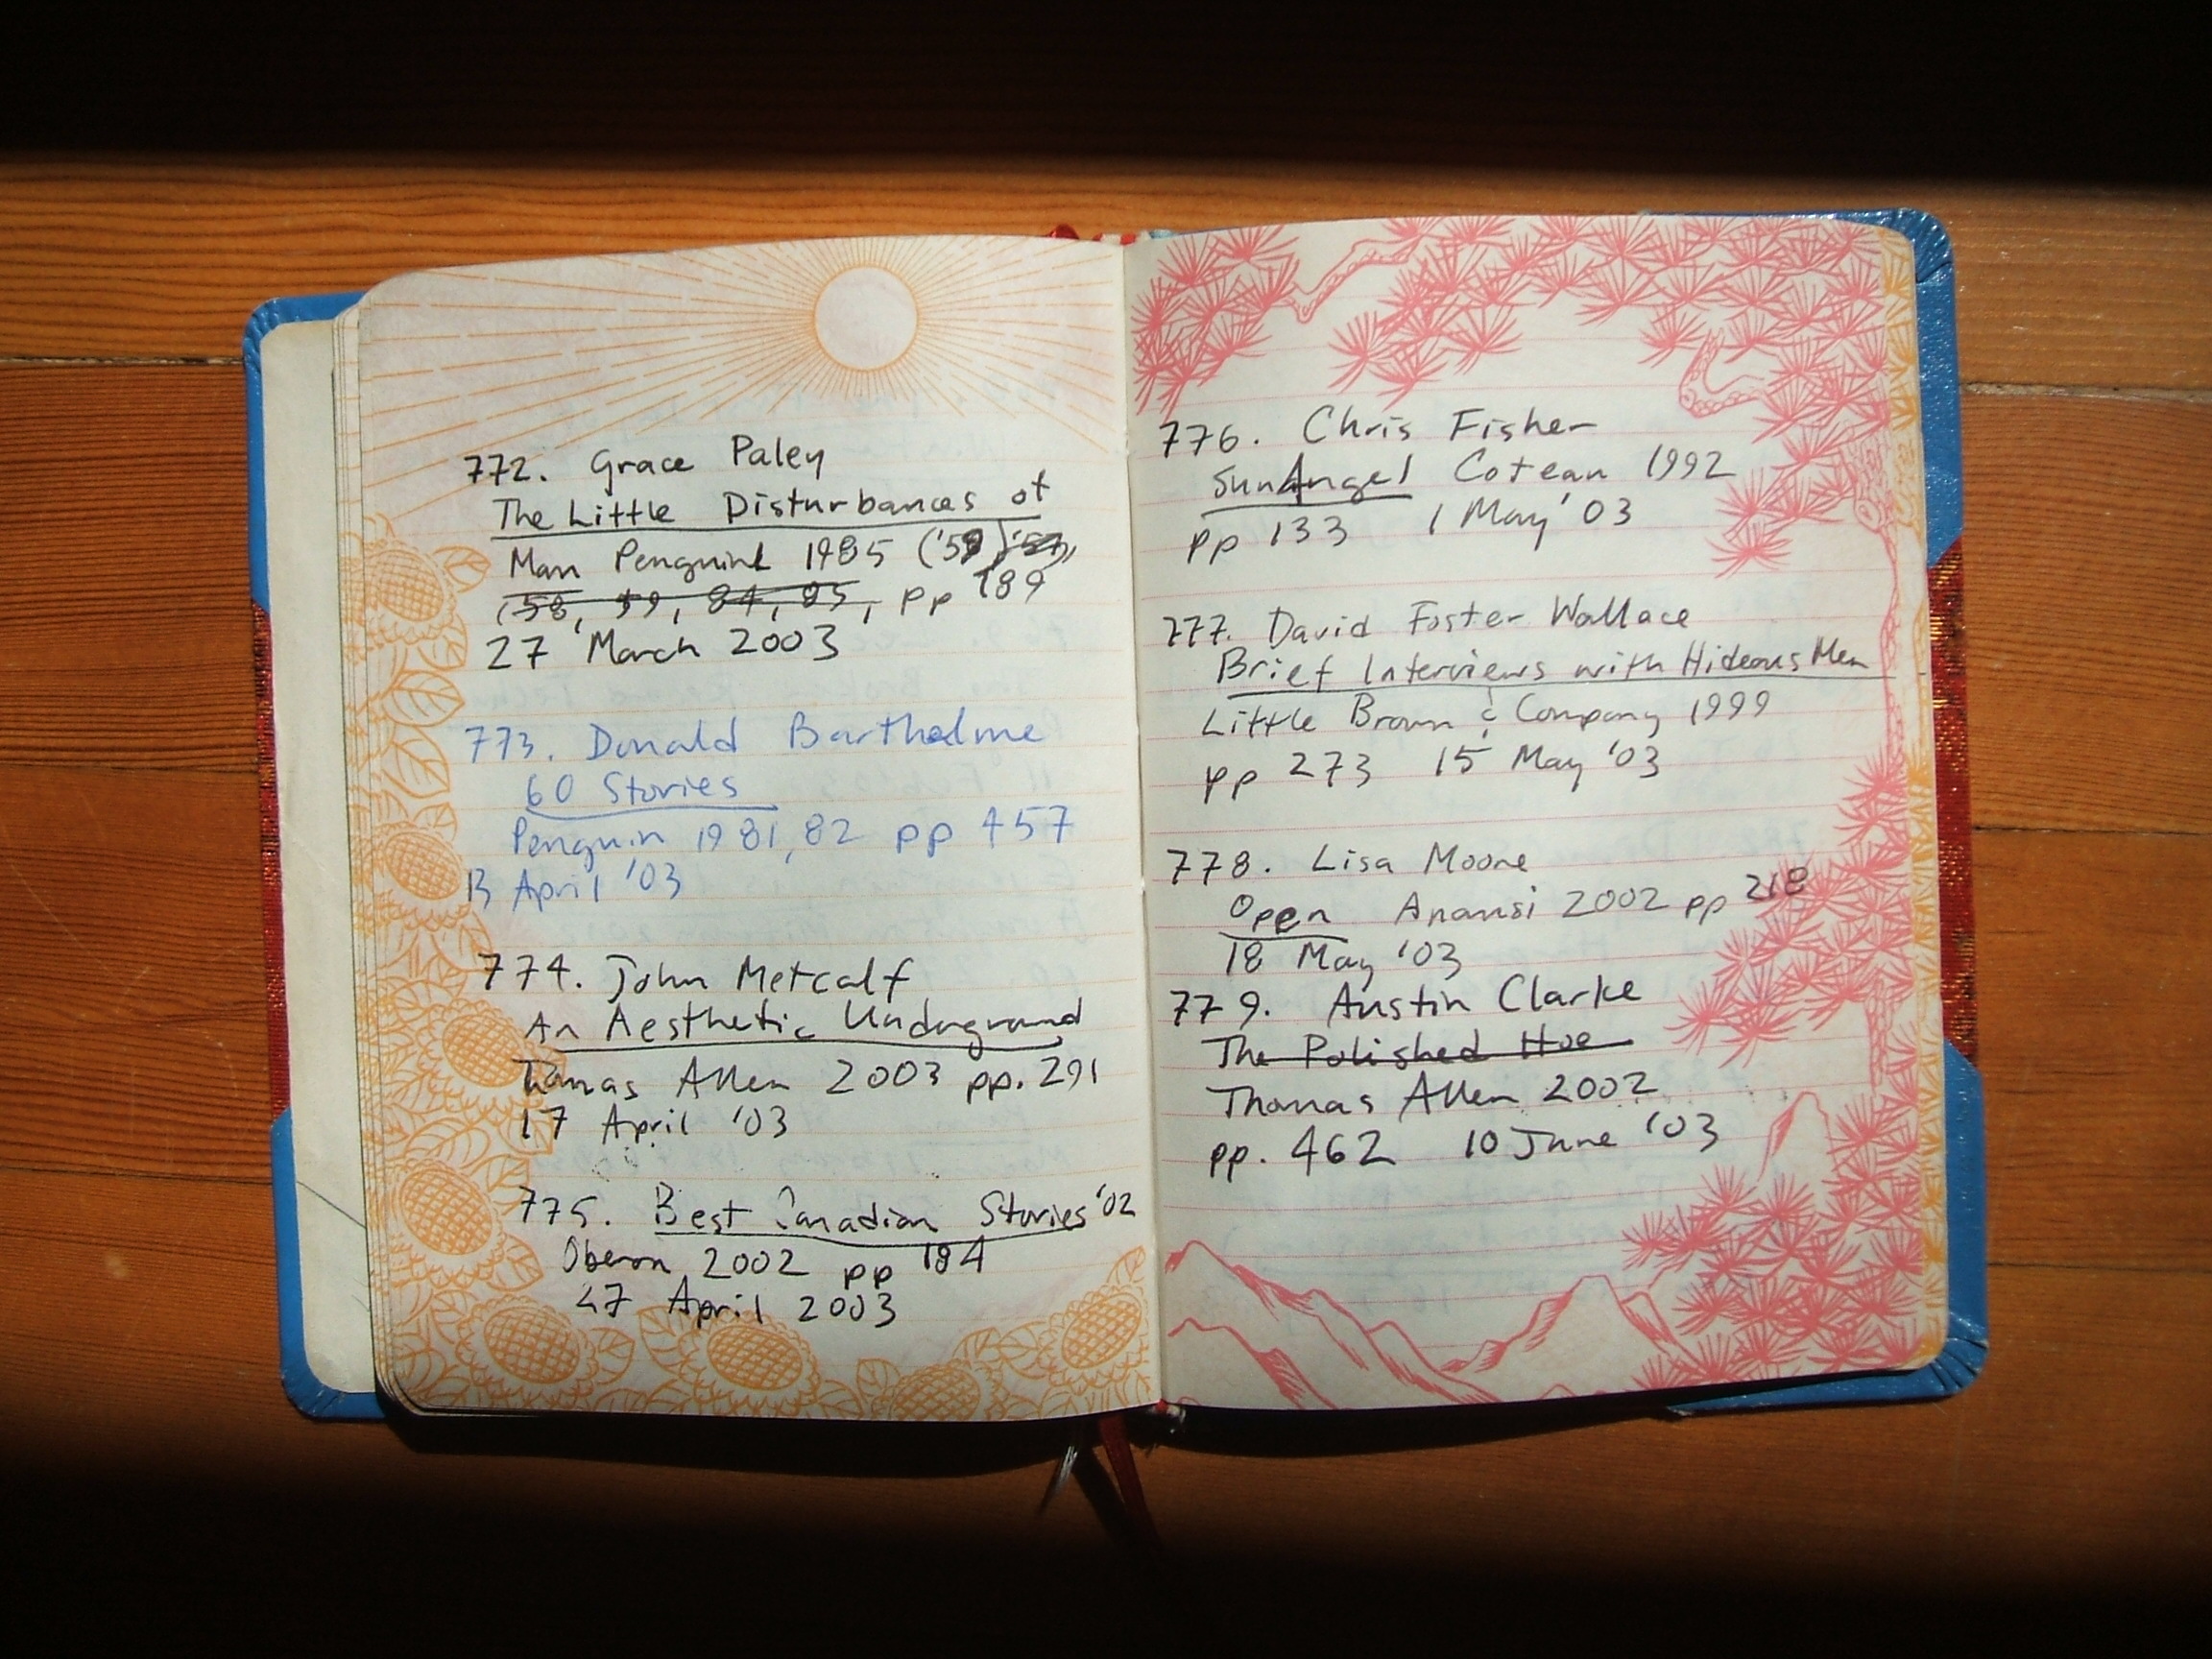 772. Grace Paley
The Little Disturbances of
Man Penguin 1985 ('59
(58, 59, 84, 85, pp 189
27 March 2003
773. Donald Barthelme
60 Stories
Penguin 1981, 82 pp 457
13 April '03
774. John Metcalf
An Aesthetic Underground
Thomas Allen 2003 pp. 291
17 April '03
775. Best Canadian Stories '02
Oberon 2002 pp 184
27 April 2003
776. Chris Fisher
Sun Angel Coteau 1992
pp 133 1 May '03
777. David Foster Wallace
Brief Interviews with Hideous Men
Little Brown & Company 1999
pp 273 15 May '03
778. Lisa Moore
Open Anansi 2002 pp 218
18 May '03
779. Austin Clarke
The Polished Hoe
Thomas Allen 2002
pp. 462 10 June '03